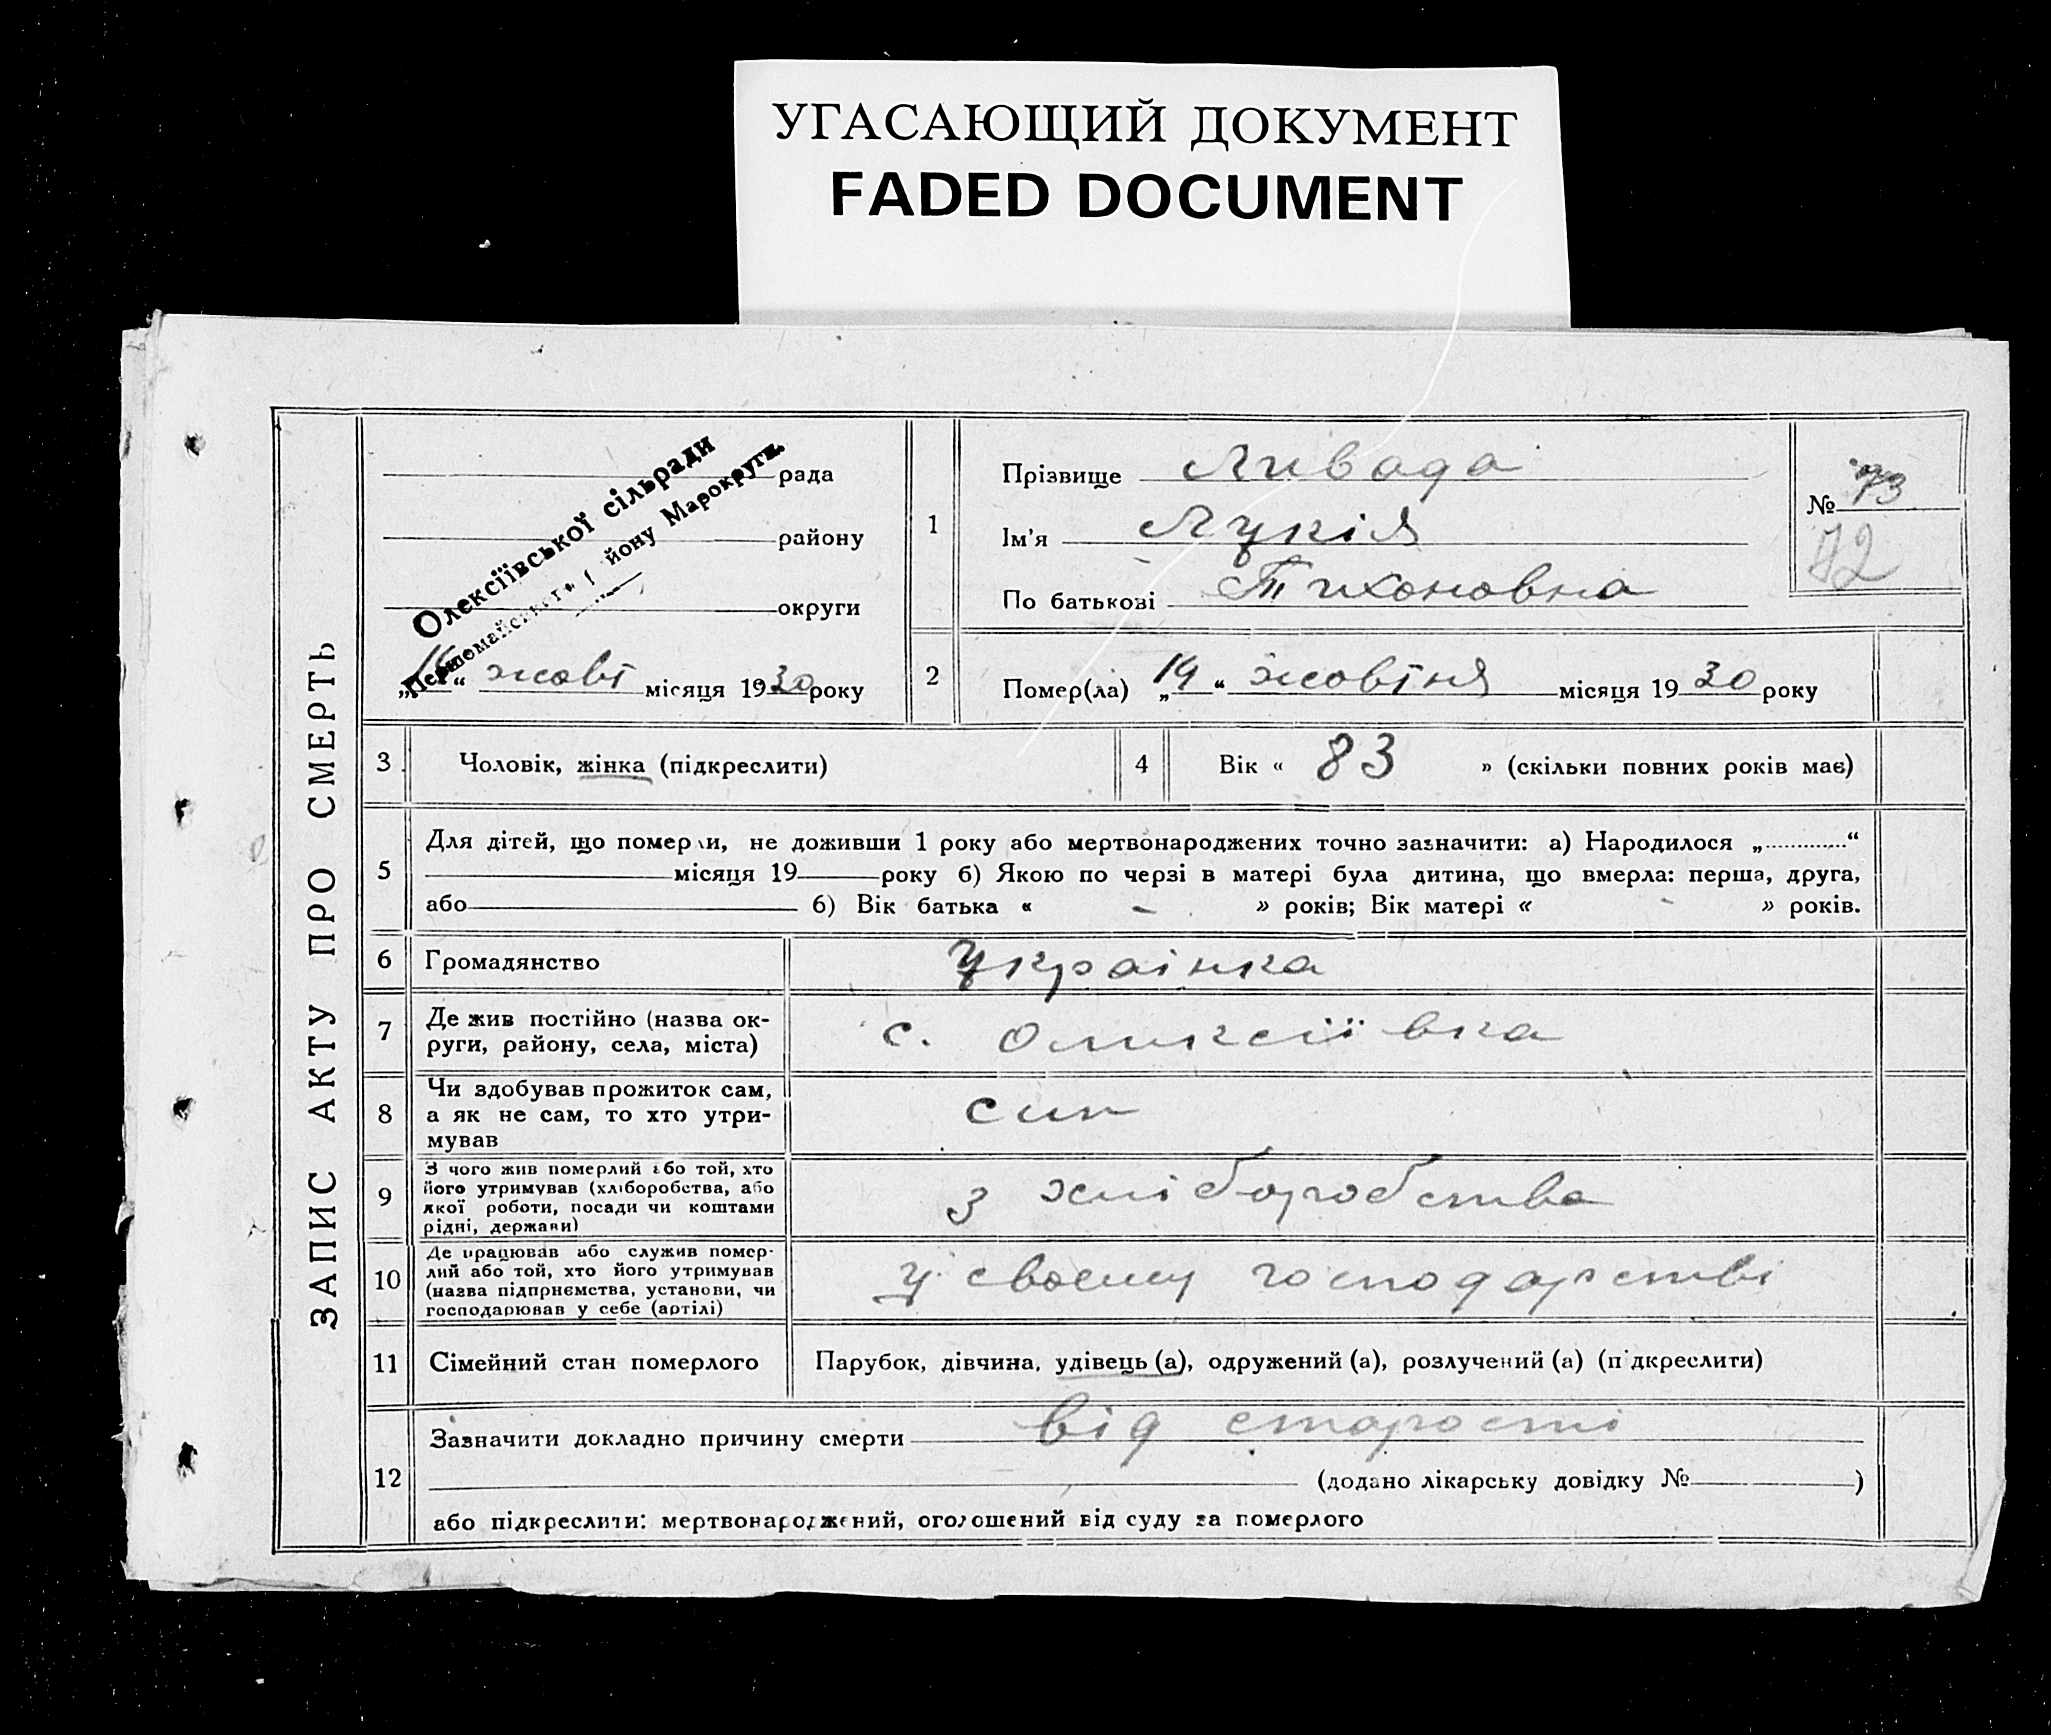 УГАСАЮЩИЙ ДОКУМЕНТ
FADED DOCUMENT
ЗАПИС АКТУ ПРО СМЕРТЬ
рада
району
округи
Олексіївської сільради
Першомайського району Марокруги.
„15“ жовт місяця 1930 року
1
Прізвище Ливада
Ім'я Лукія
По батькові Тихоновна
№ 73
72
2
Помер(ла) „14“ жовтня місяця 1930 року
3
Чоловік, жінка (підкреслити)
4
Вік « 83 » (скільки повних років має)
5
Для дітей, що померли, не доживши 1 року або мертвонароджених точно зазначити: а) Народилося „............“
місяця 19 року б) Якою по черзі в матері була дитина, що вмерла: перша, друга,
або б) Вік батька « - » років; Вік матері « - » років.
6
Громадянство
українка
7
Де жив постійно (назва ок-
руги, району, села, міста)
с. Оликсіївка
8
Чи здобував прожиток сам,
а як не сам, то хто утри-
мував
син
9
З чого жив померлий або той, хто
його утримував (хліборобства, або
якої роботи, посади чи коштами
рідні, держави)
з хліборобства
10
Де працював або служив помер-
лий або той, хто його утримував
(назва підприємства, установи, чи
господарював у себе (артілі)
у своєму господарстві
11
Сімейний стан померлого
Парубок, дівчина, удівець (а), одружений (а), розлучений (а) (підкреслити)
12
Зазначити докладно причину смерти від старості
(додано лікарську довідку № )
або підкреслити: мертвонароджений, оголошений від суду за померлого